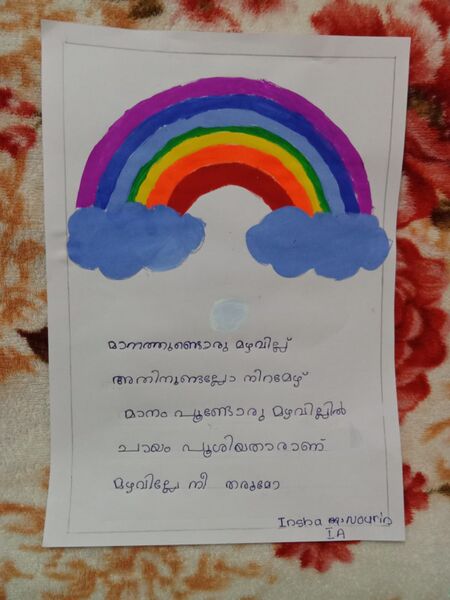 മാനത്തുണ്ടൊരു മഴവില്ല്
അതിനുണ്ടല്ലോ നിറമേഴ്
മാനം പൂണ്ടോരു മഴവില്ലിൽ
ചായം പൂശിയതാരാണ്
മഴവില്ലേ നീ തരുമോ
Insha
I A